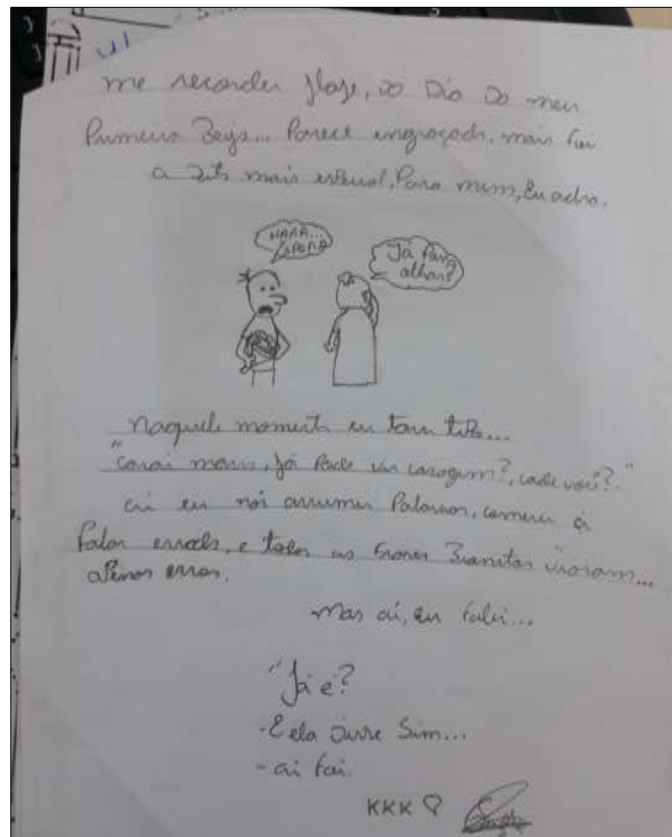 me recordei hoje, do Dia Do meu
Primeiro Beijo... Parece engraçado, mais foi
a mais especial, Para mim, Eu acho.
HAAA...
ESPERA
Já Posso
olhar?
naquele momento eu tava tipo...
"corai mano, Já Pode vir coragem?, cade você?."
ai eu não arrumei Palavras, comecei à
Falar errado, e todas as frases Bonitas viraram...
aPenas erros.
Mas ai, eu falei...
"Já é?
-E ela Disse Sim...
- ai foi.
KKK